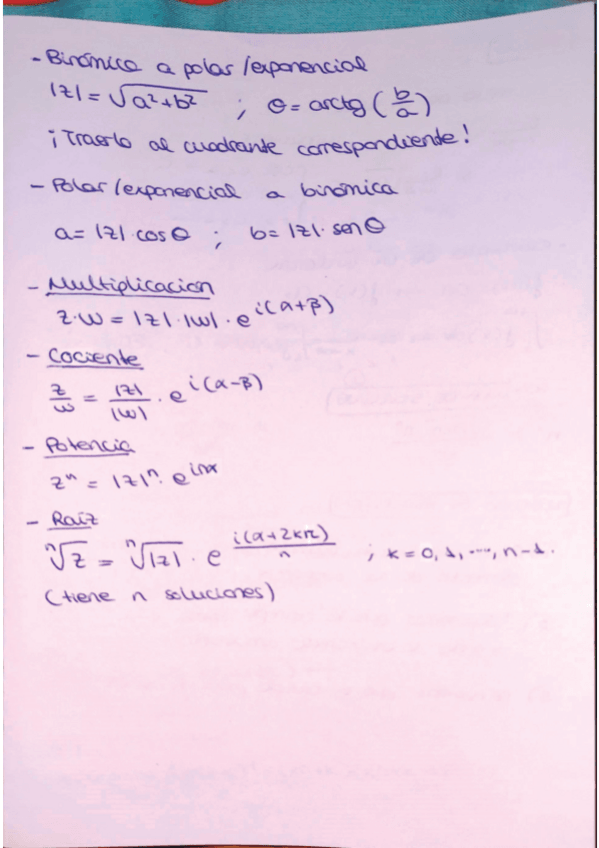 - Binómica a polar/exponencial
|z| = √(a²+b²) ; θ = arctg (b/a)
¡Traerlo al cuadrante correspondiente!
- Polar/exponencial a binómica
a = |z| · cos θ ; b = |z| · sen θ
- Multiplicación
z·w = |z| · |w| · e^(i(α+β))
- Cociente
z/w = |z|/|w| · e^(i(α-β))
- Potencia
zⁿ = |z|ⁿ · e^(inα)
- Raíz
ⁿ√z = ⁿ√|z| · e^(i(α+2kπ)/n) ; k = 0, 1, ..., n-1.
(tiene n soluciones)